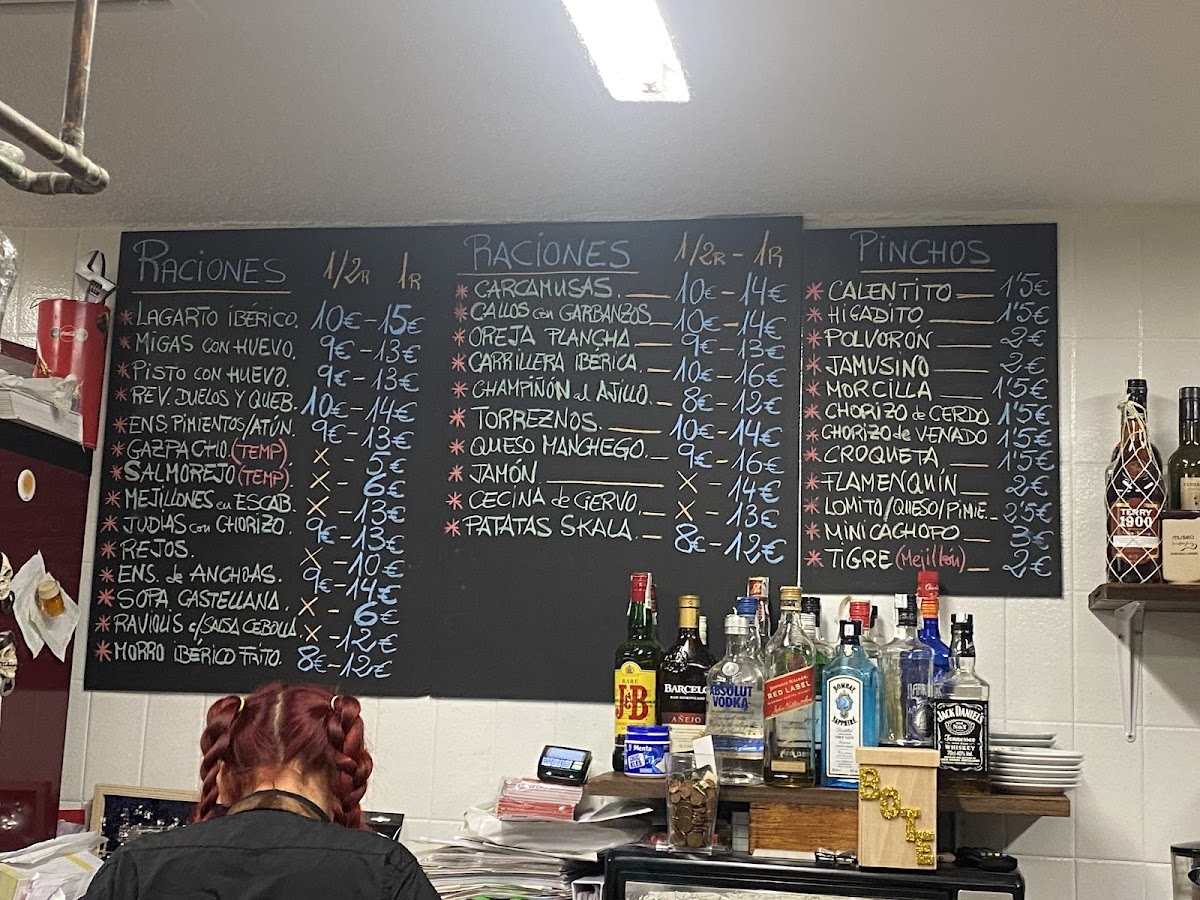 RACIONES 1/2R 1R
* LAGARTO IBÉRICO. 10€ - 15€
* MIGAS CON HUEVO. 9€ - 13€
* PISTO CON HUEVO. 9€ - 13€
* REV. DUELOS Y QUEB. 10€ - 14€
* ENS. PIMIENTOS/ATÚN. 9€ - 13€
* GAZPACHO. (TEMP). x - 5€
* SALMOREJO (TEMP). x - 6€
* MEJILLONES en ESCAB. x - 13€
* JUDIAS con CHORIZO. 9€ - 13€
* REJOS. x - 10€
* ENS. de ANCHOAS. 9€ - 14€
* SOPA CASTELLANA. x - 6€
* RAVIOLIS c/SALSA CEBOLLA x - 12€
* MORRO IBÉRICO FRITO. 8€ - 12€
RACIONES 1/2R - 1R
* CARCAMUSAS. 10€ - 14€
* CALLOS con GARBANZOS. 10€ - 14€
* OREJA PLANCHA 9€ - 13€
* CARRILLERA IBÉRICA. 10€ - 16€
* CHAMPIÑÓN al AJILLO. 8€ - 12€
* TORREZNOS. 10€ - 14€
* QUESO MANCHEGO. 9€ - 16€
* JAMÓN x - 14€
* CECINA de CIERVO. x - 14€
* PATATAS SKALA. 8€ - 12€
PINCHOS
* CALENTITO 1'5€
* HIGADITO 1'5€
* POLVORÓN 2€
* JAMUSINO 2€
* MORCILLA 1'5€
* CHORIZO de CERDO. 1'5€
* CHORIZO de VENADO 1'5€
* CROQUETA 1'5€
* FLAMENQUÍN 2€
* LOMITO/QUESO/PIMIE. 2'5€
* MINI CACHOPO 3€
* TIGRE (Mejillón) 2€
TERRY
1900
RARE
J&B
BARCELÓ
AÑEJO
ABSOLUT
VODKA
RED LABEL
BOMBAY
SAPPHIRE
JACK DANIEL'S
Tennessee
WHISKEY
Menta
BOTE